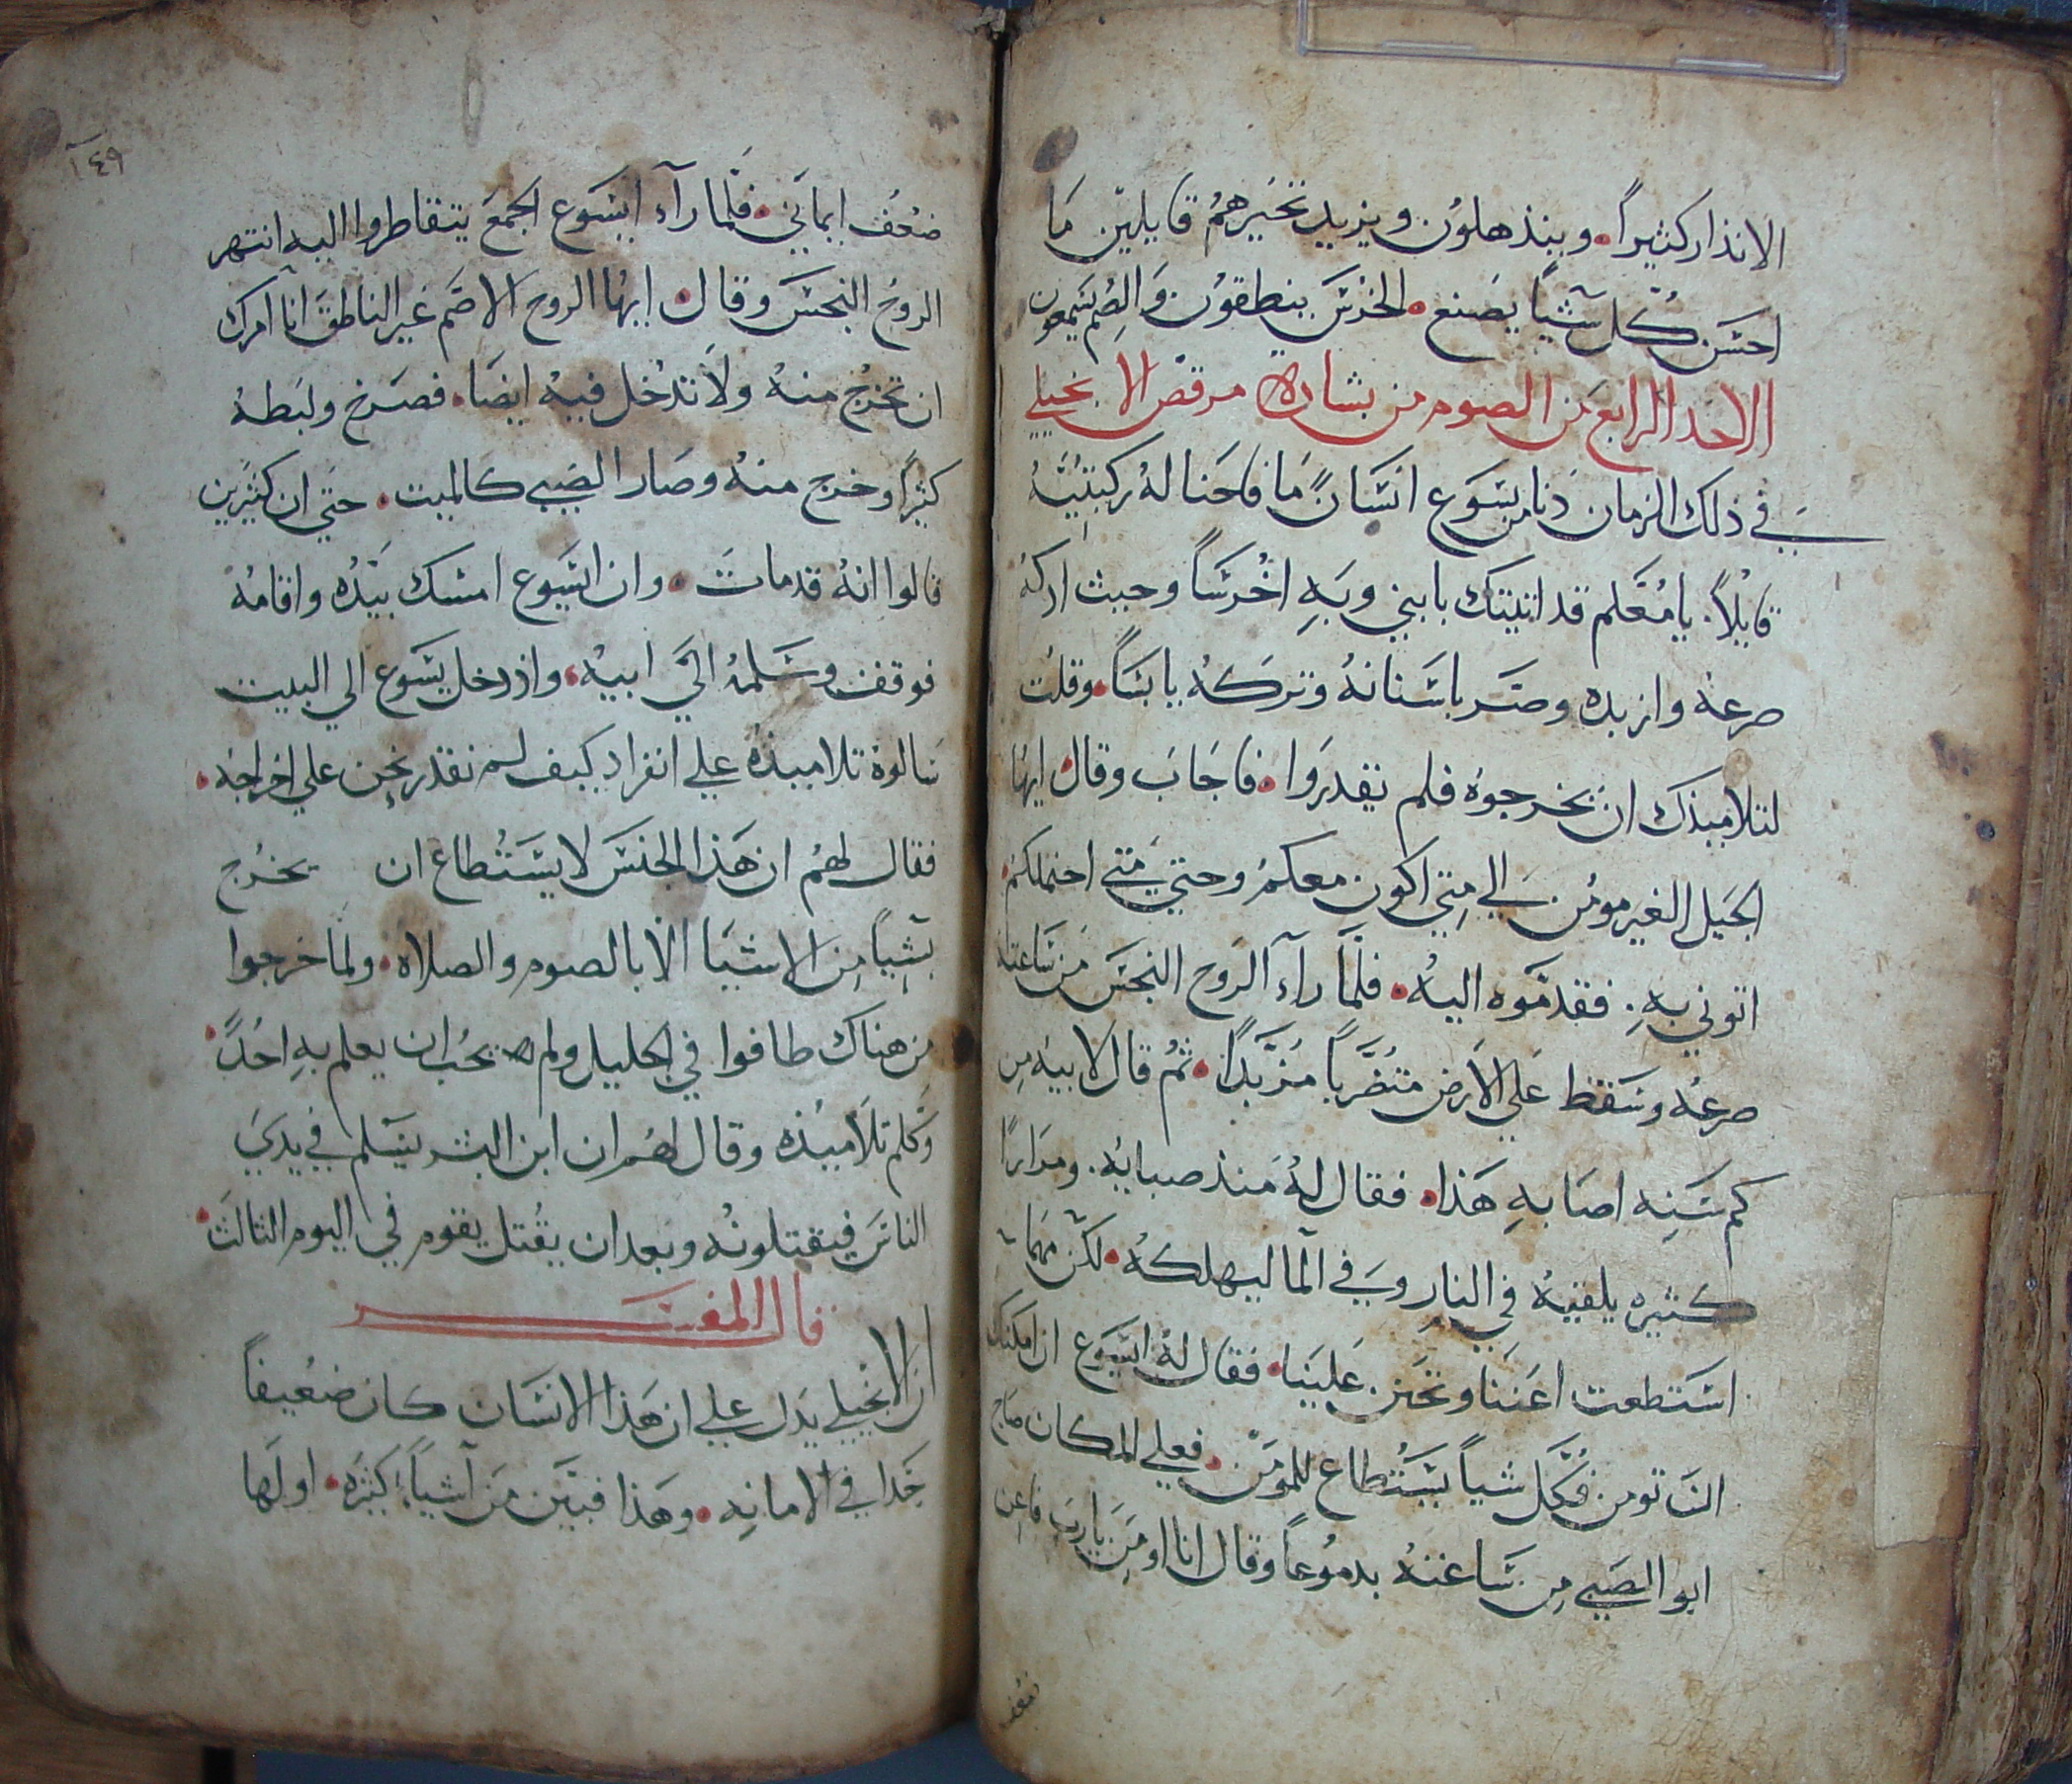 الانذار كثيراً. وينذهلون ويزيد تحيرهم قايلين ما
احسن كل شياً يصنع. الخرس ينطقون والصم يسمعون
الاحد الرابع من الصوم من بشارة مرقص الانجيلي
في ذلك الزمان دنا من يسوع انسانً ما فاحنا له ركبتيه
قايلاً. يا معلم قد اتيتك بابني وبهِ اخرساً وحيث ادركه
صرعه وازبده وصر باسنانه وتركه يابساً. وقلت
لتلاميذك ان يخرجوه فلم يقدروا. فاجاب وقال ايها
الجيل الغير مومن الي متي اكون معكم وحتي متي احتملكم.
اتوني بهِ. فقدموه اليه. فلما رآء الروح النجس من ساعته
صرعه وسقط علي الارض متضرباً مزبداً. ثم قال لابيه من
كم سنه اصابهِ هذا. فقال له منذ صبايه. ومراراً
كثيره يلقيه في النار وفي الما ليهلكه. لكن مهما
استطعت اعننا وتحنن علينا. فقال له ايسوع ان امكنك
انت تومن فكل شياً يستطاع للمومن. فعلي المكان صاح
ابو الصبي من ساعته بدموعاً وقال انا اومن يا رب فاعن
ضعف
١٤٩
ضعف ايماني. فلما رآء ايسوع الجمع يتقاطروا اليه انتهر
الروح النجس وقال ايها الروح الاصم غير الناطق انا آمرك
ان تخرج منه ولا تدخل فيه ايضا. فصرخ ولبطه
كثيراً وخرج منه وصار الصبي كالميت. حتي ان كثيرين
قالوا انه قد مات. وان ايسوع امسك بيده واقامه
فوقف وسلمه الي ابيه. واذ دخل يسوع الي البيت
سالوه تلاميذه علي انفراد كيف لم نقدر نحن علي اخراجه.
فقال لهم ان هذا الجنس لا يستطاع ان يخرج
بشياً من الاشيا الا بالصوم والصلاه. ولما خرجوا
من هناك طافوا في الجليل ولم يحب ان يعلم بهِ احدً.
وكلم تلاميذه وقال لهم ان ابن البشر يسلم في يدي
الناس فيقتلونه وبعد ان يقتل يقوم في اليوم الثالث.
قال المفسر
ان الانجيلي يدل علي ان هذا الانسان كان ضعيفاً
جدا في الامانه. وهذا فبين من اشياً كثيره. اولها